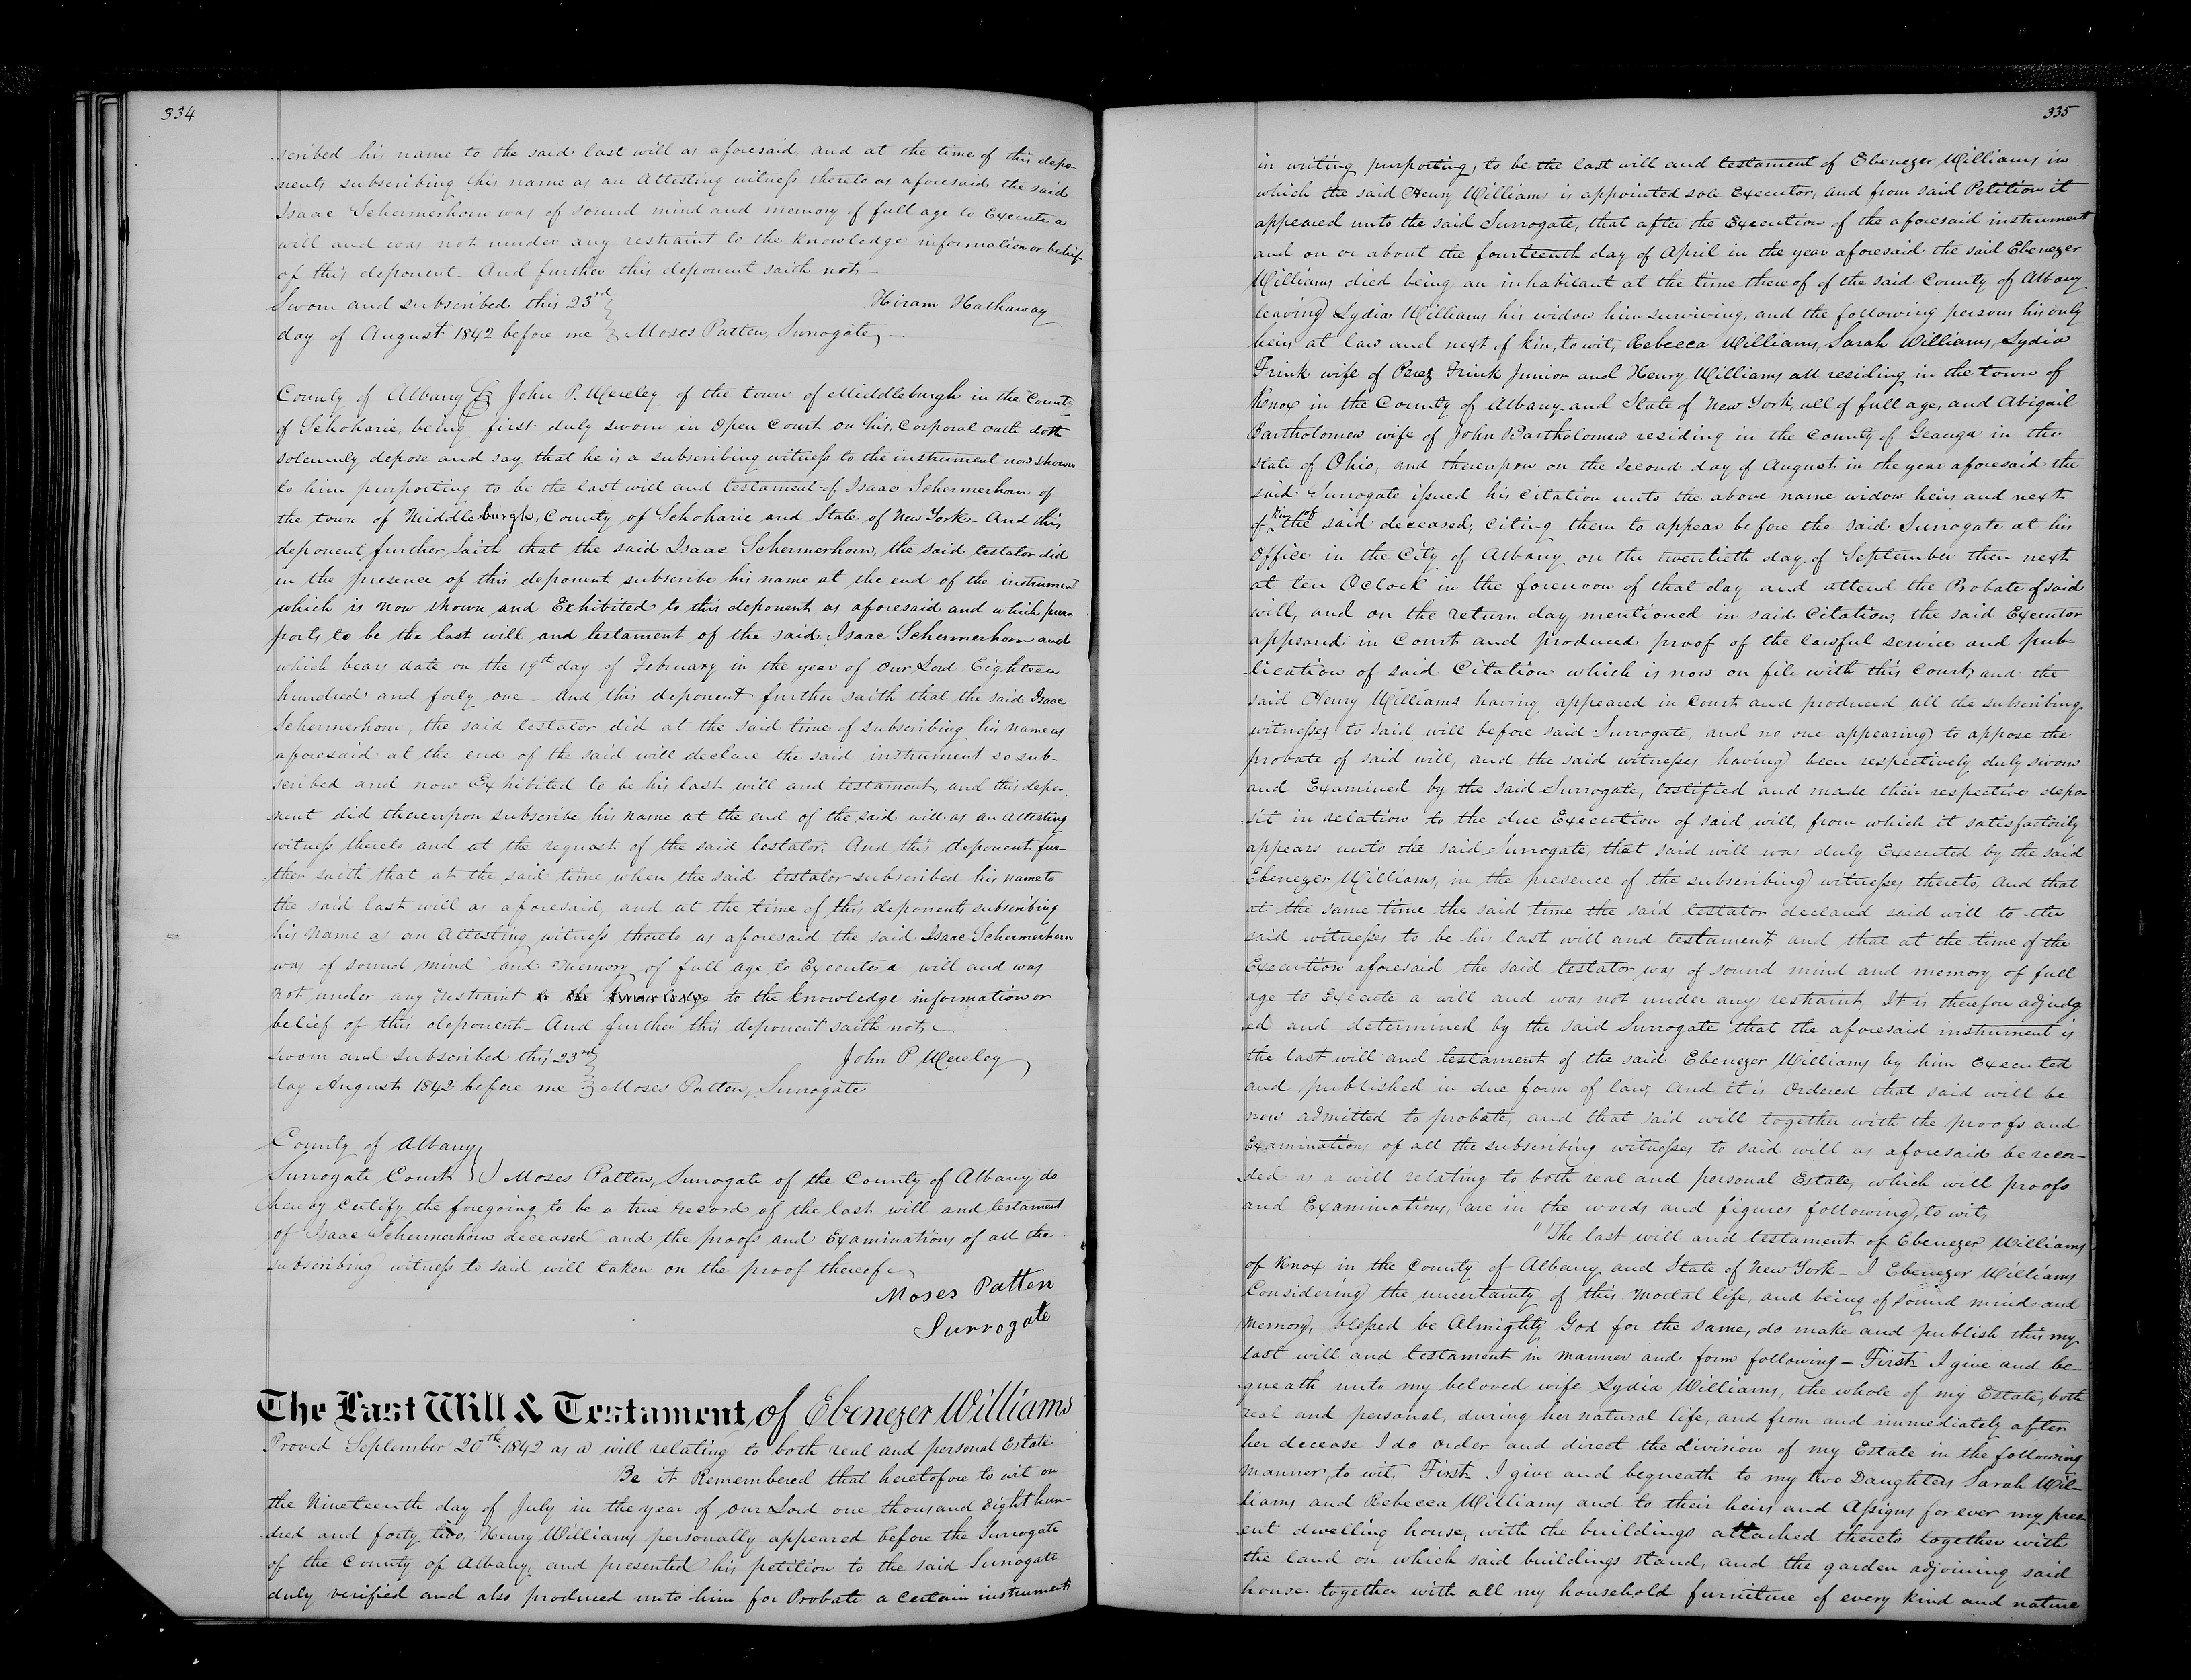 334
scribed his name to the said last will as aforesaid, and at the time of this depo-
nents subscribing his name as an Attesting witness thereto as aforesaid the said
Isaac Schermerhorn was of sound mind and memory of full age to Execute a
will and was not under any restraint to the knowledge information or belief
of this deponent - And further this deponent saith not -
Sworn and subscribed this 23rd Hiram Hathaway
day of August 1842 before me Moses Patten, Surrogate, -
County of Albany Ss John P. Mereley of the town of Middleburgh in the County
of Schoharie, being first duly sworn in Open Court on his, Corporal oath doth
solemnly depose and say that he is a subscribing witness to the instrument now shown
to him purporting to be the last will and testament of Isaac Schermerhorn of
the town of Middleburgh, County of Schoharie and State of New York - And this
deponent further saith that the said Isaac Schermerhorn, the said testator did
in the presence of this deponent subscribe his name at the end of the instrument
which is now shown and Exhibited to this deponent as aforesaid and which pur-
ports to be the last will and testament of the said Isaac Schermerhorn and
which bears date on the 19th day of February in the year of our Lord Eighteen
hundred and forty one - And this deponent further saith that the said Isaac
Schermerhorn, the said testator did at the said time of subscribing his name as
aforesaid at the end of the said will declare the said instrument so sub-
scribed and now Exhibited to be his last will and testament, and this depo-
nent did thereupon subscribe his name at the end of the said will as an attesting
witness thereto and at the request of the said testator. And this deponent fur-
ther saith that at the said time when the said testator subscribed his name to
the said last will as aforesaid, and at the time of this deponents subscribing
his name as an Attesting witness thereto as aforesaid the said Isaac Schermerhorn
was of sound mind and memory of full age to Execute a will and was
not under any restraint to the knowledge to the knowledge information or
belief of this deponent - And further this deponent saith not -
sworn and subscribed this 23rd John P. Mereley
day August 1842 before me Moses Patten, Surrogate
County of Albany
Surrogate Court I Moses Patten, Surrogate of the County of Albany do
hereby Certify the foregoing to be a true record of the last will and testament
of Isaac Schermerhorn deceased and the proofs and Examinations of all the
subscribing witness to said will taken on the proof thereof
Moses Patten
Surrogate
The Last Will & Testament of Ebenezer Williams
Proved September 20th 1842 as a will relating to both real and personal Estate
Be it Remembered that heretofore to wit on
the Nineteenth day of July in the year of our Lord one thousand Eight hun-
dred and forty two, Henry Williams personally appeared before the Surrogate
of the County of Albany, and presented his petition to the said Surrogate
duly verified and also produced unto him for Probate a certain instrument
335
in writing purporting to be the last will and testament of Ebenezer Williams in
which the said Henry Williams is appointed sole Executor, and from said Petition it
appeared unto the said Surrogate, that after the Execution of the aforesaid instrument
and on or about the fourteenth day of April in the year aforesaid the said Ebenezer
Williams died being an inhabitant at the time there of of the said County of Albany
leaving Lydia Williams his widow him surviving, and the following persons his only
heirs at law and next of kin, to wit, Rebecca Williams, Sarah Williams, Lydia
Frink wife of Perez Frink Junior and Henry Williams all residing in the town of
Knox in the County of Albany and State of New York, all of full age, and Abigail
Bartholomew wife of John Bartholomew residing in the County of Geauga in the
state of Ohio, and thereupon on the Second day of August in the year aforesaid the
said Surrogate issued his citation unto the above name widow heirs and next
of kin of the said deceased, Citing them to appear before the said Surrogate at his
Office in the City of Albany on the twentieth day of September then next
at ten OClock in the forenoon of that day and attend the Probate of said
will, and on the return day mentioned in said Citation, the said Executor
appeared in Court and produced proof of the lawful service and pub-
lication of said Citation which is now on file with this Court, and the
said Henry Williams having appeared in Court and produced all the subscribing
witnesses to said will before said Surrogate, and no one appearing to appose the
probate of said will, and the said witnesses having been respectively duly sworn
and Examined by the said Surrogate, testified and made their respective depo-
sit in relation to the due Execution of said will, from which it satisfactorily
appears unto the said Surrogate, that said will was duly Executed by the said
Ebenezer Williams, in the presence of the subscribing witnesses thereto, And that
at the same time the said time the said testator declared said will to the
said witnesses to be his last will and testament and that at the time of the
Execution aforesaid the said testator was of sound mind and memory of full
age to Execute a will and was not under any restraint. It is therefore adjudg-
ed and determined by the said Surrogate that the aforesaid instrument is
the last will and testament of the said Ebenezer Williams by him Executed
and published in due form of law, And it is Ordered that said will be
now admitted to probate, and that said will together with the proofs and
Examinations of all the subscribing witnesses to said will as aforesaid be recor-
ded as a will relating to both real and personal Estate, which will proofs
and Examinations, are in the words and figures following, to wit,
"The last will and testament of Ebenezer Williams
of Knox in the County of Albany and State of New York - I Ebenezer Williams
Considering the uncertainty of this mortal life, and being of sound mind and
memory, blessed be Almighty God for the same, do make and publish this my
last will and testament in manner and form following - First I give and be-
queath unto my beloved wife Lydia Williams, the whole of my Estate, both
real and personal, during her natural life, and from and immediately after
her decease I do order and direct the division of my Estate in the following
manner, to wit, First I give and bequeath to my two Daughters Sarah Wil-
liams and Rebecca Williams and to their heirs and Assigns for ever my pres-
ent dwelling house, with the buildings attached thereto together with
the land on which said buildings stand, and the garden adjoining said
house together with all my household furniture of every kind and nature